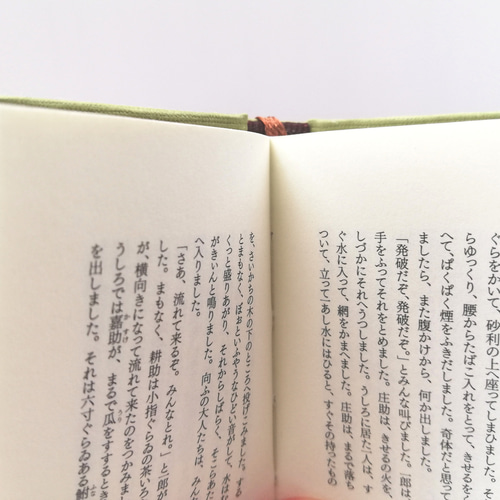 ぐらをかいて、砂利の上へ座ってしまひました。そ
らゆっくり、腰からたばこ入れをとって、きせるを
へて、ぱくぱく煙をふきだしました。奇体だと思って
ましたら、また腹かけから、何か出しました。
「発破だぞ、発破だぞ。」とみんな叫びました。一郎
手をふってそれをとめました。庄助は、きせるの火を、
しづかにそれへうつしました。うしろに居た一人は、す
ぐ水に入って、網をかまへました。庄助は、まるで落ち
ついて、立って一あし水にはひると、すぐその持ったもの
を、さいかちの木の下のところへ投げこみました。する
とまもなく、ぼぉといふやうなひどい音がして、水は
くっと盛りあがり、それからしばらく、そこらあた
がきぃんと鳴りました。向ふの大人たちは、みん
へ入りました。
「さあ、流れて来るぞ。みんなとれ。」と一郎が
した。まもなく、耕助は小指ぐらゐの茶いろ
が、横向きになって流れて来たのをつかみま
うしろでは嘉助が、まるで瓜をすするとき
を出しました。それは六寸ぐらゐある鮒